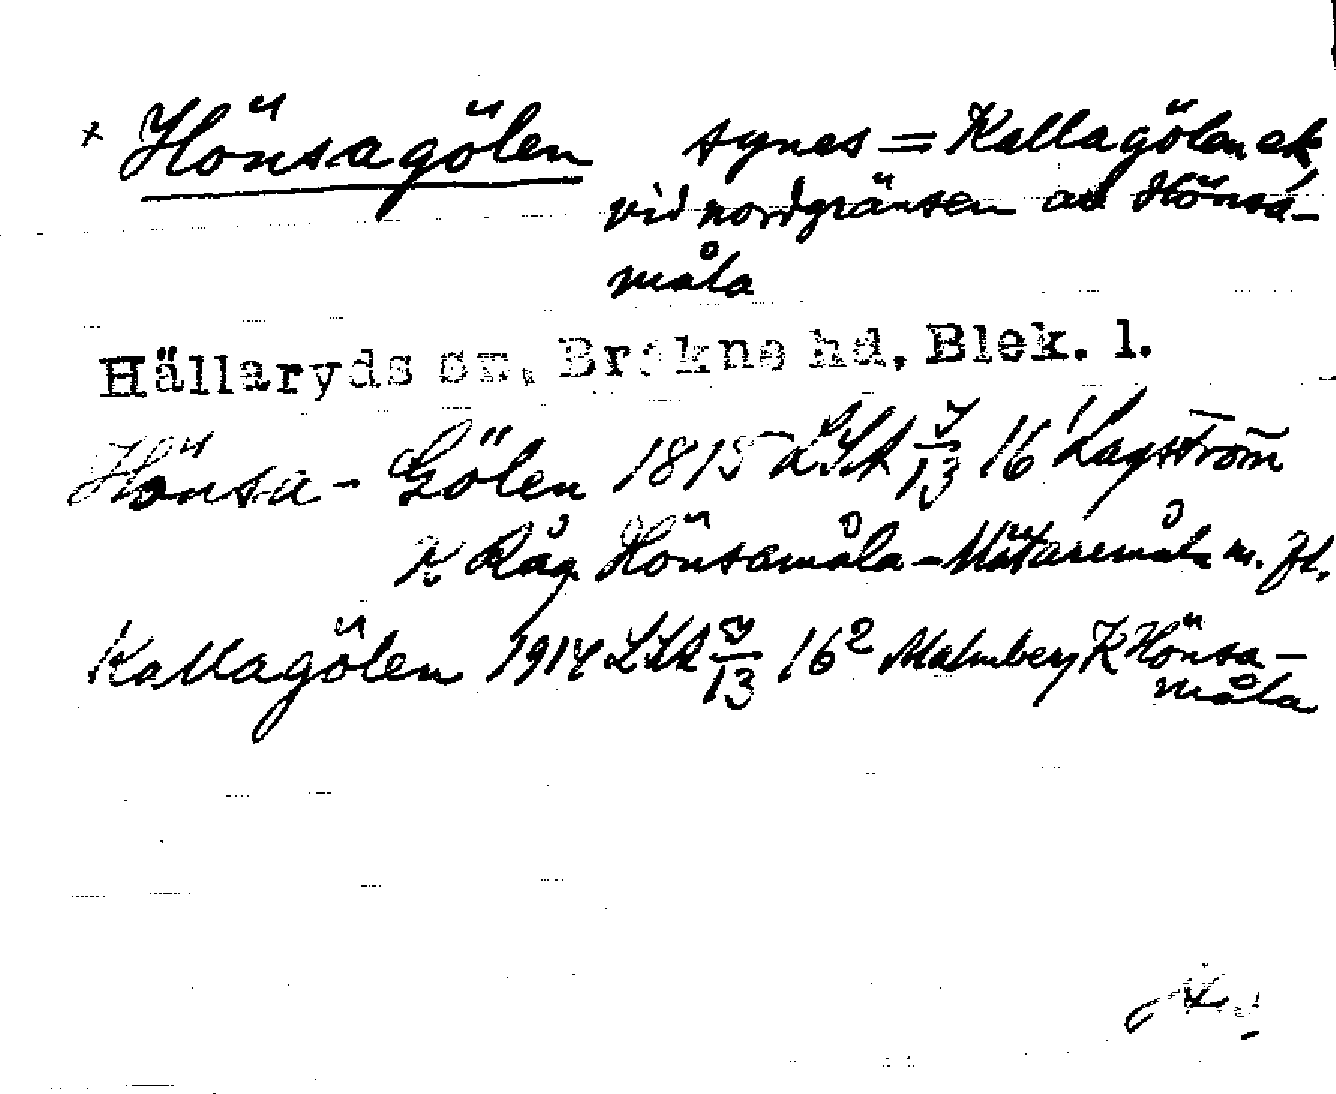 × Hönsagölen synes = Kallagölen ek
vid nordgränsen av Hönsa-
måla
Hällaryds sn, Bräkne hd, Blek. l.
Hönsa-Gölen 1815 LSA 7/13 16¹ Lagström
K Råg Hönsamåla-Mätaremåla m. fl.
Kallagölen 1914 LSA 7/13 16² Malmberg K Hönsa-
måla